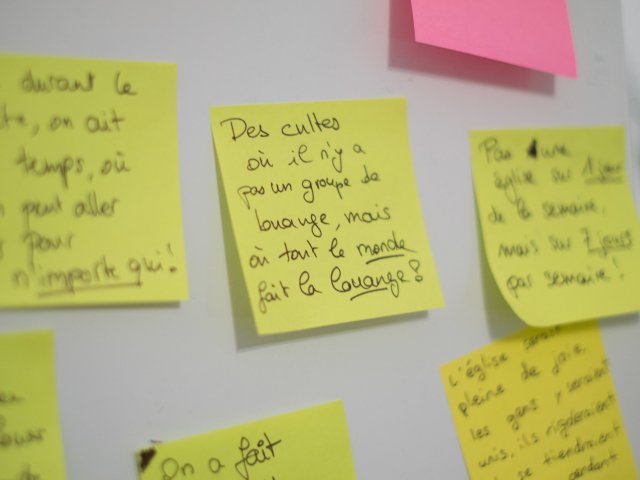 durant le
on ait
temps, où
peut aller
pour
n'importe qui!
Des cultes
où il n'y a
pas un groupe de
louange, mais
où tout le monde
fait la louange!
Pas 1 une
église sur 1 jour
de la semaine,
mais sur 7 jours
par semaine!
L'église serait
pleine de joie
les gens y seraient
unis, ils rigoleraient
se tiendraient
pendant
On a fait